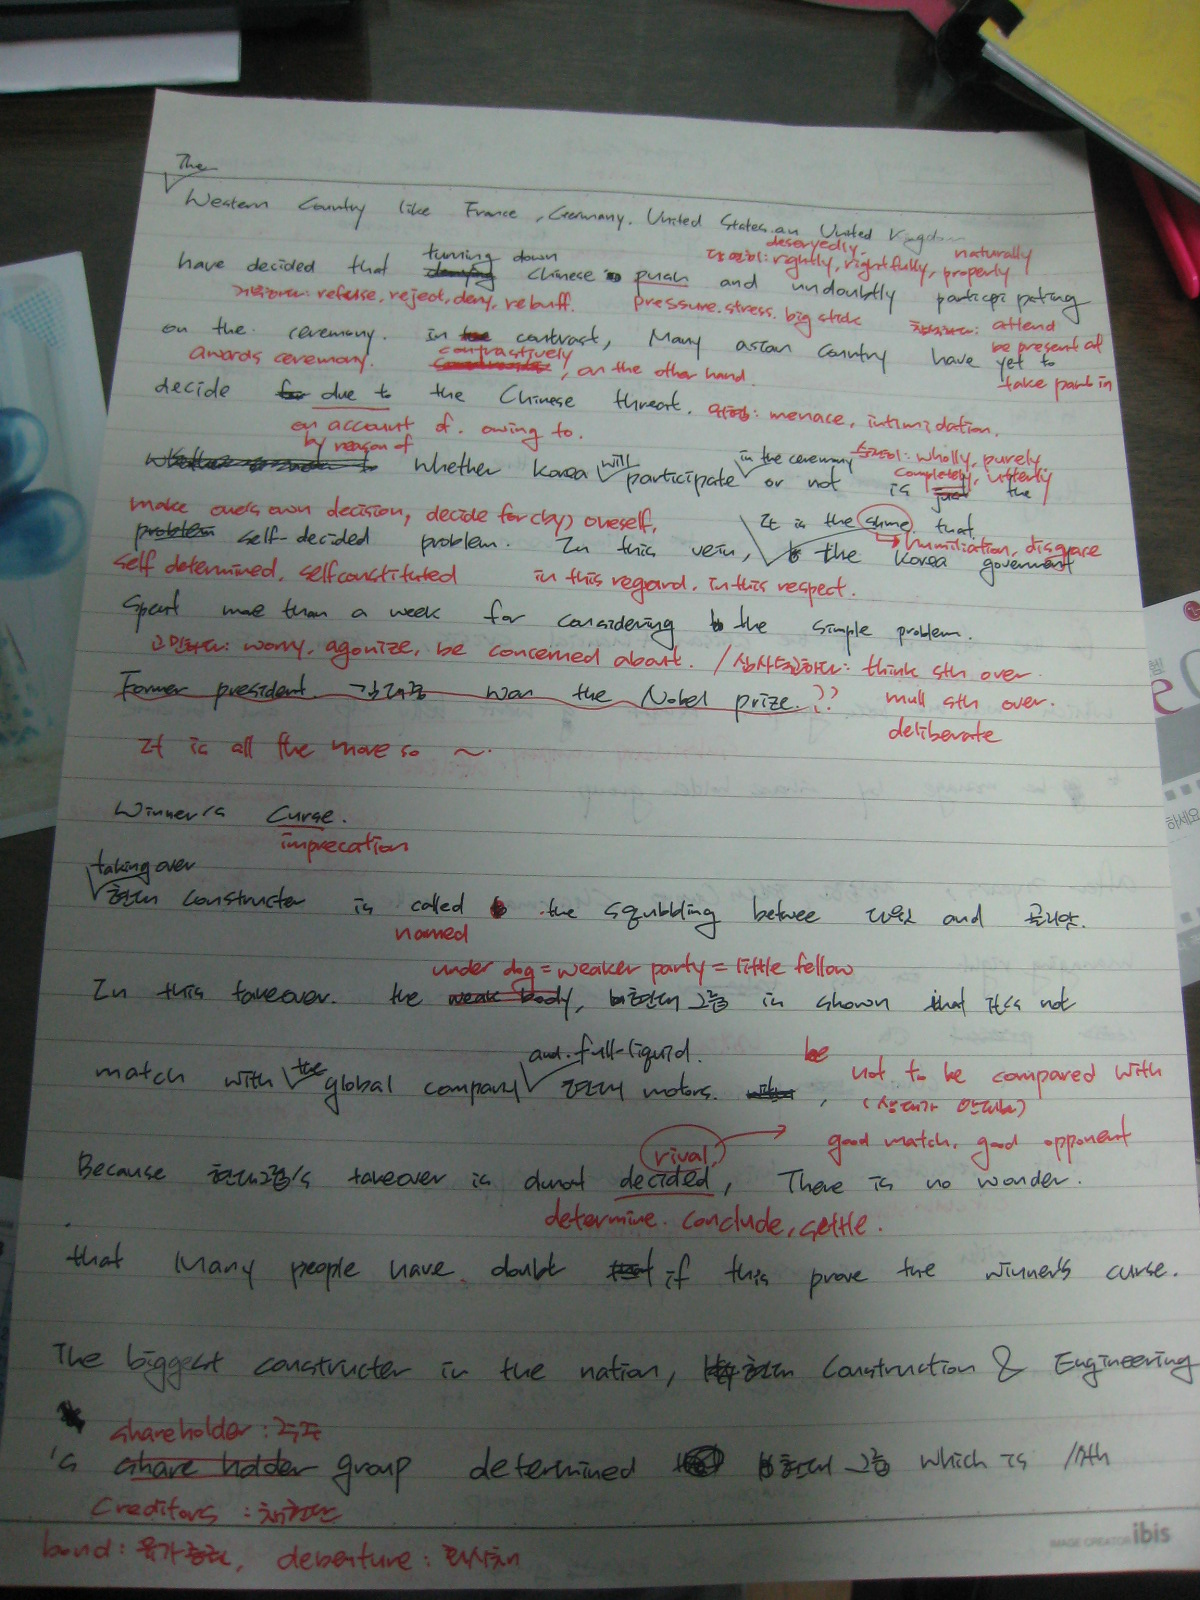 The
Western Country like France, Germany. United States an United Kingdom
deservedly. naturally
turning down 당연히: rightly, rightfully, properly
have decided that denying Chinese push and undoubtly participating
거절하다: refuse, reject, deny, rebuff. pressure. stress. big stick
참석하다: attend
on the ceremony. in contrast, Many asian country have yet to
be present at
awards ceremony. contrastively, on the other hand.
take part in
decide due to the Chinese threat. 위협: menace, intimidation.
on account of. owing to.
by reason of
whether Korea will participate in the ceremony or not is just the
순전히: wholly, purely.
completely, utterly
make one's own decision, decide for(by) oneself,
It is the shme that
problem self-decided problem. In this vein, the Korea goverment
humiliation, disgrace
self determined, selfconstituted in this regard. in this respect.
spent more than a week for considering the simple problem.
고민하다: worry, agonize, be concerned about. / 심사숙고하다: think sth over.
Former president 김대중 won the Nobel prize.??
mull sth over.
deliberate
It is all the more so ~.
Winner's Curse.
imprecation
taking over
현대 constructer is called the squbbling betwee 다윗 and 골리앗.
named
under dog = weaker party = little fellow
In this takeover. the weak body, 현대 그룹 is shown that it's not
and. full-liquid.
match with the global company 현대 motors.
be not to be compared with
(상대가 안되는)
rival good match. good opponent
Because 현대그룹's takeover is almost decided, There is no wonder.
determine. conclude, settle.
that Many people have doubt that if this prove the winner's curse.
The biggest constructer in the nation, 현대 Construction & Engineering
shareholder: 주주
's share holder group determined 현대 그룹 which is 17th
Creditors: 채권단
bond: 유가증권, debenture: 회사채
IMAGE CREATOR ibis